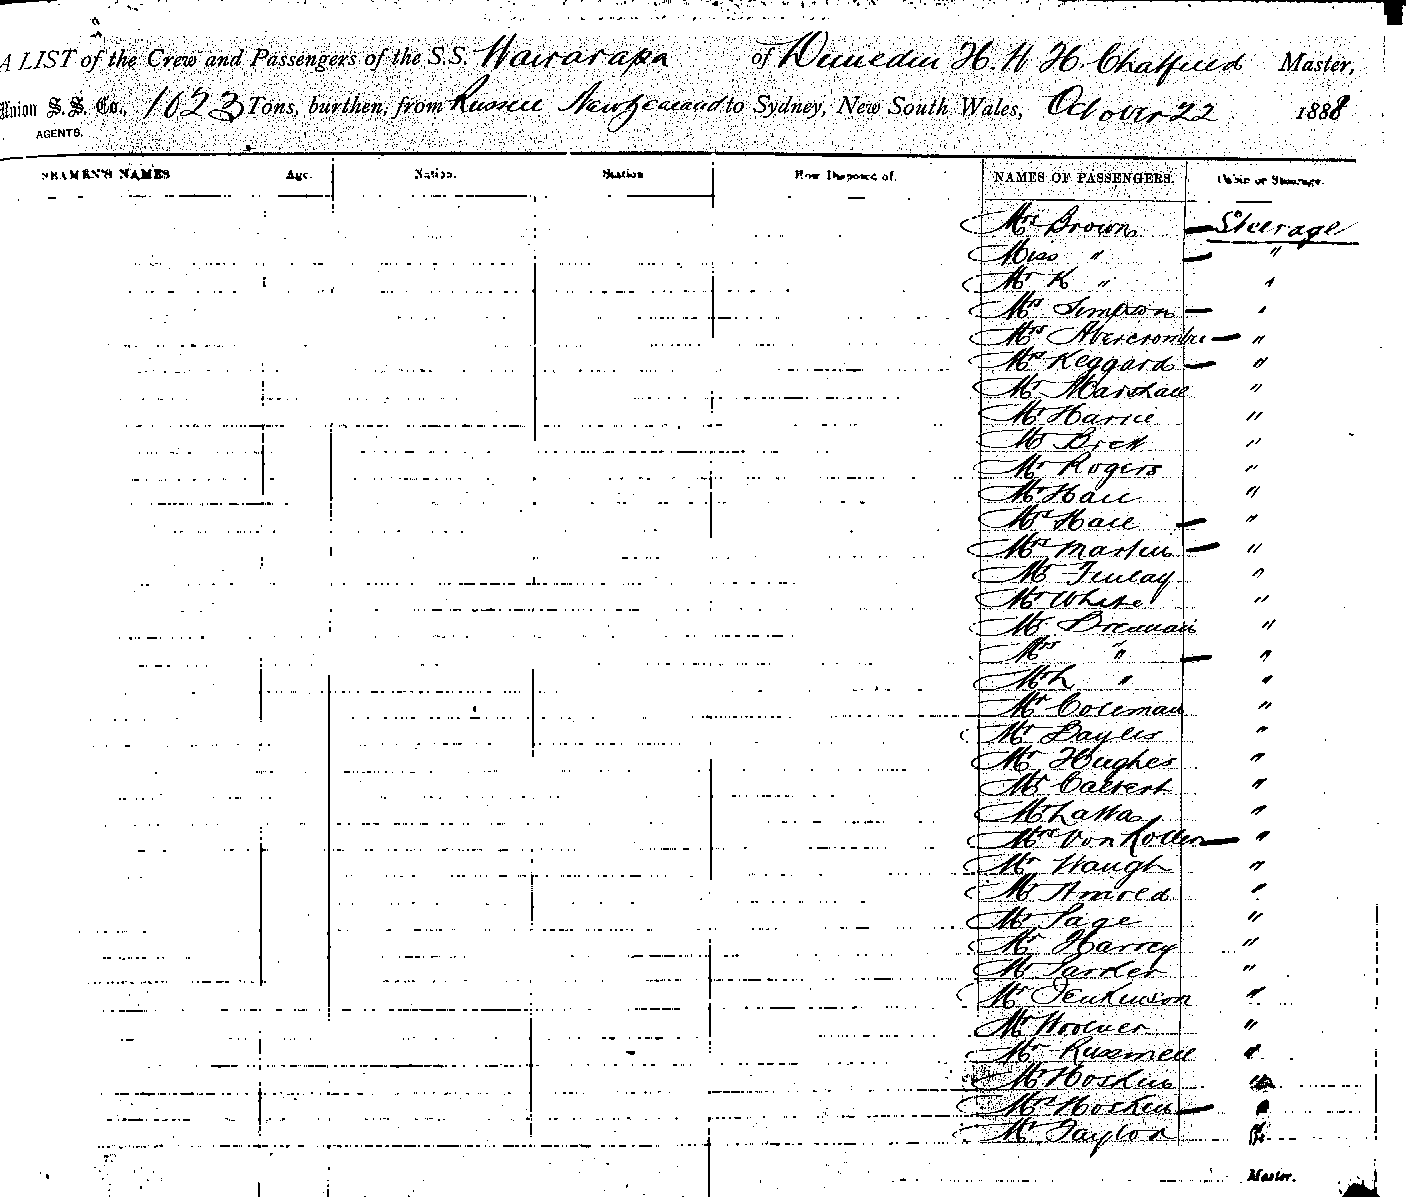 A LIST of the Crew and Passengers of the S.S. Wairarapa of Dunedin H. W. H. Chatfield Master,
Union S.S. Co., 1623 Tons, burthen, from Russell New Zealand to Sydney, New South Wales, October 22 1888
AGENTS.
SEAMEN'S NAMES Age. Nation. Station How Disposed of. NAMES OF PASSENGERS. Cabin or Steerage.
Mrs Brown — Steerage
Miss " — "
Mr K " "
Mrs Simpson — "
Mrs Abercrombie — "
Mrs Keggard — "
Mr Marshall "
Mr Harrie "
Mr Brett "
Mr Rogers "
Mr Hall "
Mrs Hall — "
Mrs Martin — "
Mr Finlay "
Mr White "
Mr Brennan "
Mrs " — "
Mr L " "
Mr Coleman "
Mr Bayley "
Mr Hughes "
Mr Calvert "
Mr "
Mrs Von — "
Mr Waugh "
Mr Arnold "
Mr Page "
Mr Harvey "
Mr "
Mr Jenkinson "
Mr Woolner "
Mr "
Mr Hoskin "
Mrs Hoskin — "
Mr Taylor "
Master.